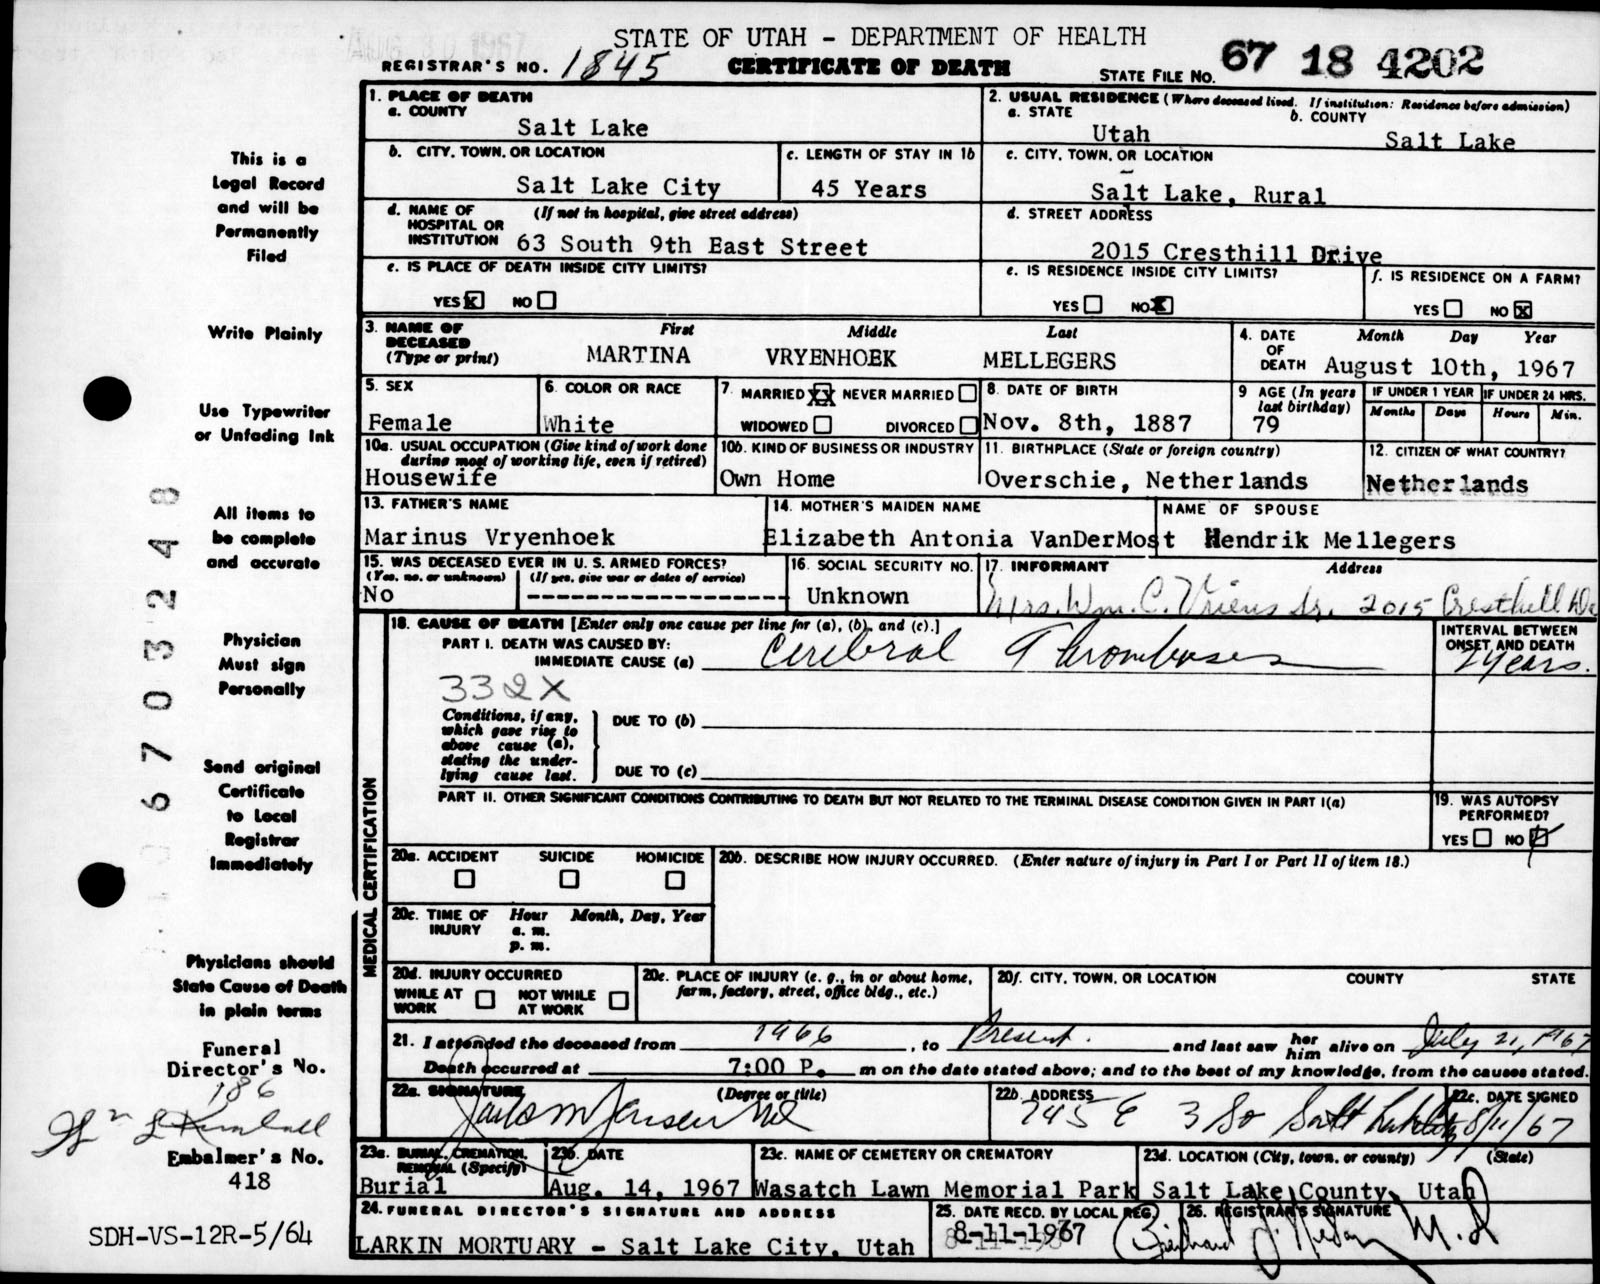 STATE OF UTAH - DEPARTMENT OF HEALTH
REGISTRAR'S NO. 1845 CERTIFICATE OF DEATH STATE FILE NO. 67 18 4202
1. PLACE OF DEATH
a. COUNTY
Salt Lake
2. USUAL RESIDENCE (Where deceased lived. If institution: Residence before admission)
a. STATE Utah b. COUNTY Salt Lake
b. CITY, TOWN, OR LOCATION
Salt Lake City
c. LENGTH OF STAY IN 1b
45 Years
c. CITY, TOWN, OR LOCATION
Salt Lake, Rural
d. NAME OF HOSPITAL OR INSTITUTION (If not in hospital, give street address)
63 South 9th East Street
d. STREET ADDRESS
2015 Cresthill Drive
e. IS PLACE OF DEATH INSIDE CITY LIMITS?
YES X NO
e. IS RESIDENCE INSIDE CITY LIMITS?
YES NO X
f. IS RESIDENCE ON A FARM?
YES NO X
3. NAME OF DECEASED (Type or print)
First Middle Last
MARTINA VRYENHOEK MELLEGERS
4. DATE OF DEATH Month Day Year
August 10th, 1967
5. SEX
Female
6. COLOR OR RACE
White
7. MARRIED XX NEVER MARRIED
WIDOWED DIVORCED
8. DATE OF BIRTH
Nov. 8th, 1887
9 AGE (In years last birthday)
79
IF UNDER 1 YEAR
Months Days
IF UNDER 24 HRS.
Hours Min.
10a. USUAL OCCUPATION (Give kind of work done during most of working life, even if retired)
Housewife
10b. KIND OF BUSINESS OR INDUSTRY
Own Home
11. BIRTHPLACE (State or foreign country)
Overschie, Netherlands
12. CITIZEN OF WHAT COUNTRY?
Netherlands
13. FATHER'S NAME
Marinus Vryenhoek
14. MOTHER'S MAIDEN NAME
Elizabeth Antonia VanDerMost
NAME OF SPOUSE
Hendrik Mellegers
15. WAS DECEASED EVER IN U. S. ARMED FORCES?
(Yes, no, or unknown) (If yes, give war or dates of service)
No
16. SOCIAL SECURITY NO.
Unknown
17. INFORMANT Address
Mrs. Wm. C. Vriens Sr. 2015 Cresthill Dr
18. CAUSE OF DEATH [Enter only one cause per line for (a), (b), and (c).]
PART I. DEATH WAS CAUSED BY:
IMMEDIATE CAUSE (a) Cerebral Thrombosis
INTERVAL BETWEEN ONSET AND DEATH
2 years.
332X
Conditions, if any, which gave rise to above cause (a), stating the underlying cause last.
DUE TO (b)
DUE TO (c)
PART II. OTHER SIGNIFICANT CONDITIONS CONTRIBUTING TO DEATH BUT NOT RELATED TO THE TERMINAL DISEASE CONDITION GIVEN IN PART I(a)
19. WAS AUTOPSY PERFORMED?
YES NO
MEDICAL CERTIFICATION
20a. ACCIDENT SUICIDE HOMICIDE
20b. DESCRIBE HOW INJURY OCCURRED. (Enter nature of injury in Part I or Part II of item 18.)
20c. TIME OF INJURY Hour Month, Day, Year
a. m.
p. m.
20d. INJURY OCCURRED
WHILE AT WORK NOT WHILE AT WORK
20e. PLACE OF INJURY (e. g., in or about home, farm, factory, street, office bldg., etc.)
20f. CITY, TOWN, OR LOCATION COUNTY STATE
21. I attended the deceased from 1966, to Present. and last saw her him alive on July 21, 1967
Death occurred at 7:00 P. m on the date stated above; and to the best of my knowledge, from the causes stated.
22a. SIGNATURE (Degree or title)
22b. ADDRESS
745 E 3 So Salt Lake City
22c. DATE SIGNED
8/11/67
23a. BURIAL, CREMATION, REMOVAL (Specify)
Burial
23b. DATE
Aug. 14, 1967
23c. NAME OF CEMETERY OR CREMATORY
Wasatch Lawn Memorial Park
23d. LOCATION (City, town, or county) (State)
Salt Lake County, Utah
24. FUNERAL DIRECTOR'S SIGNATURE AND ADDRESS
LARKIN MORTUARY - Salt Lake City, Utah
25. DATE RECD. BY LOCAL REG.
8-11-1967
26. REGISTRAR'S SIGNATURE
M.D
This is a
Legal Record
and will be
Permanently
Filed
Write Plainly
Use Typewriter
or Unfading Ink
All items to
be complete
and accurate
Physician
Must sign
Personally
Send original
Certificate
to Local
Registrar
Immediately
Physicians should
State Cause of Death
in plain terms
Funeral
Director's No.
186
Embalmer's No.
418
SDH-VS-12R-5/64
6703248